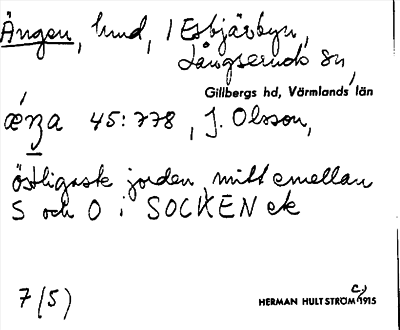 Ängen, hmd, i Esbjärbyn,
Långseruds sn,
Gillbergs hd, Värmlands län
45:778, J. Olsson,
östligaste jorden mitt emellan
S och O i SOCKEN ek
7 (5)
HERMAN HULTSTRÖM c) 1915